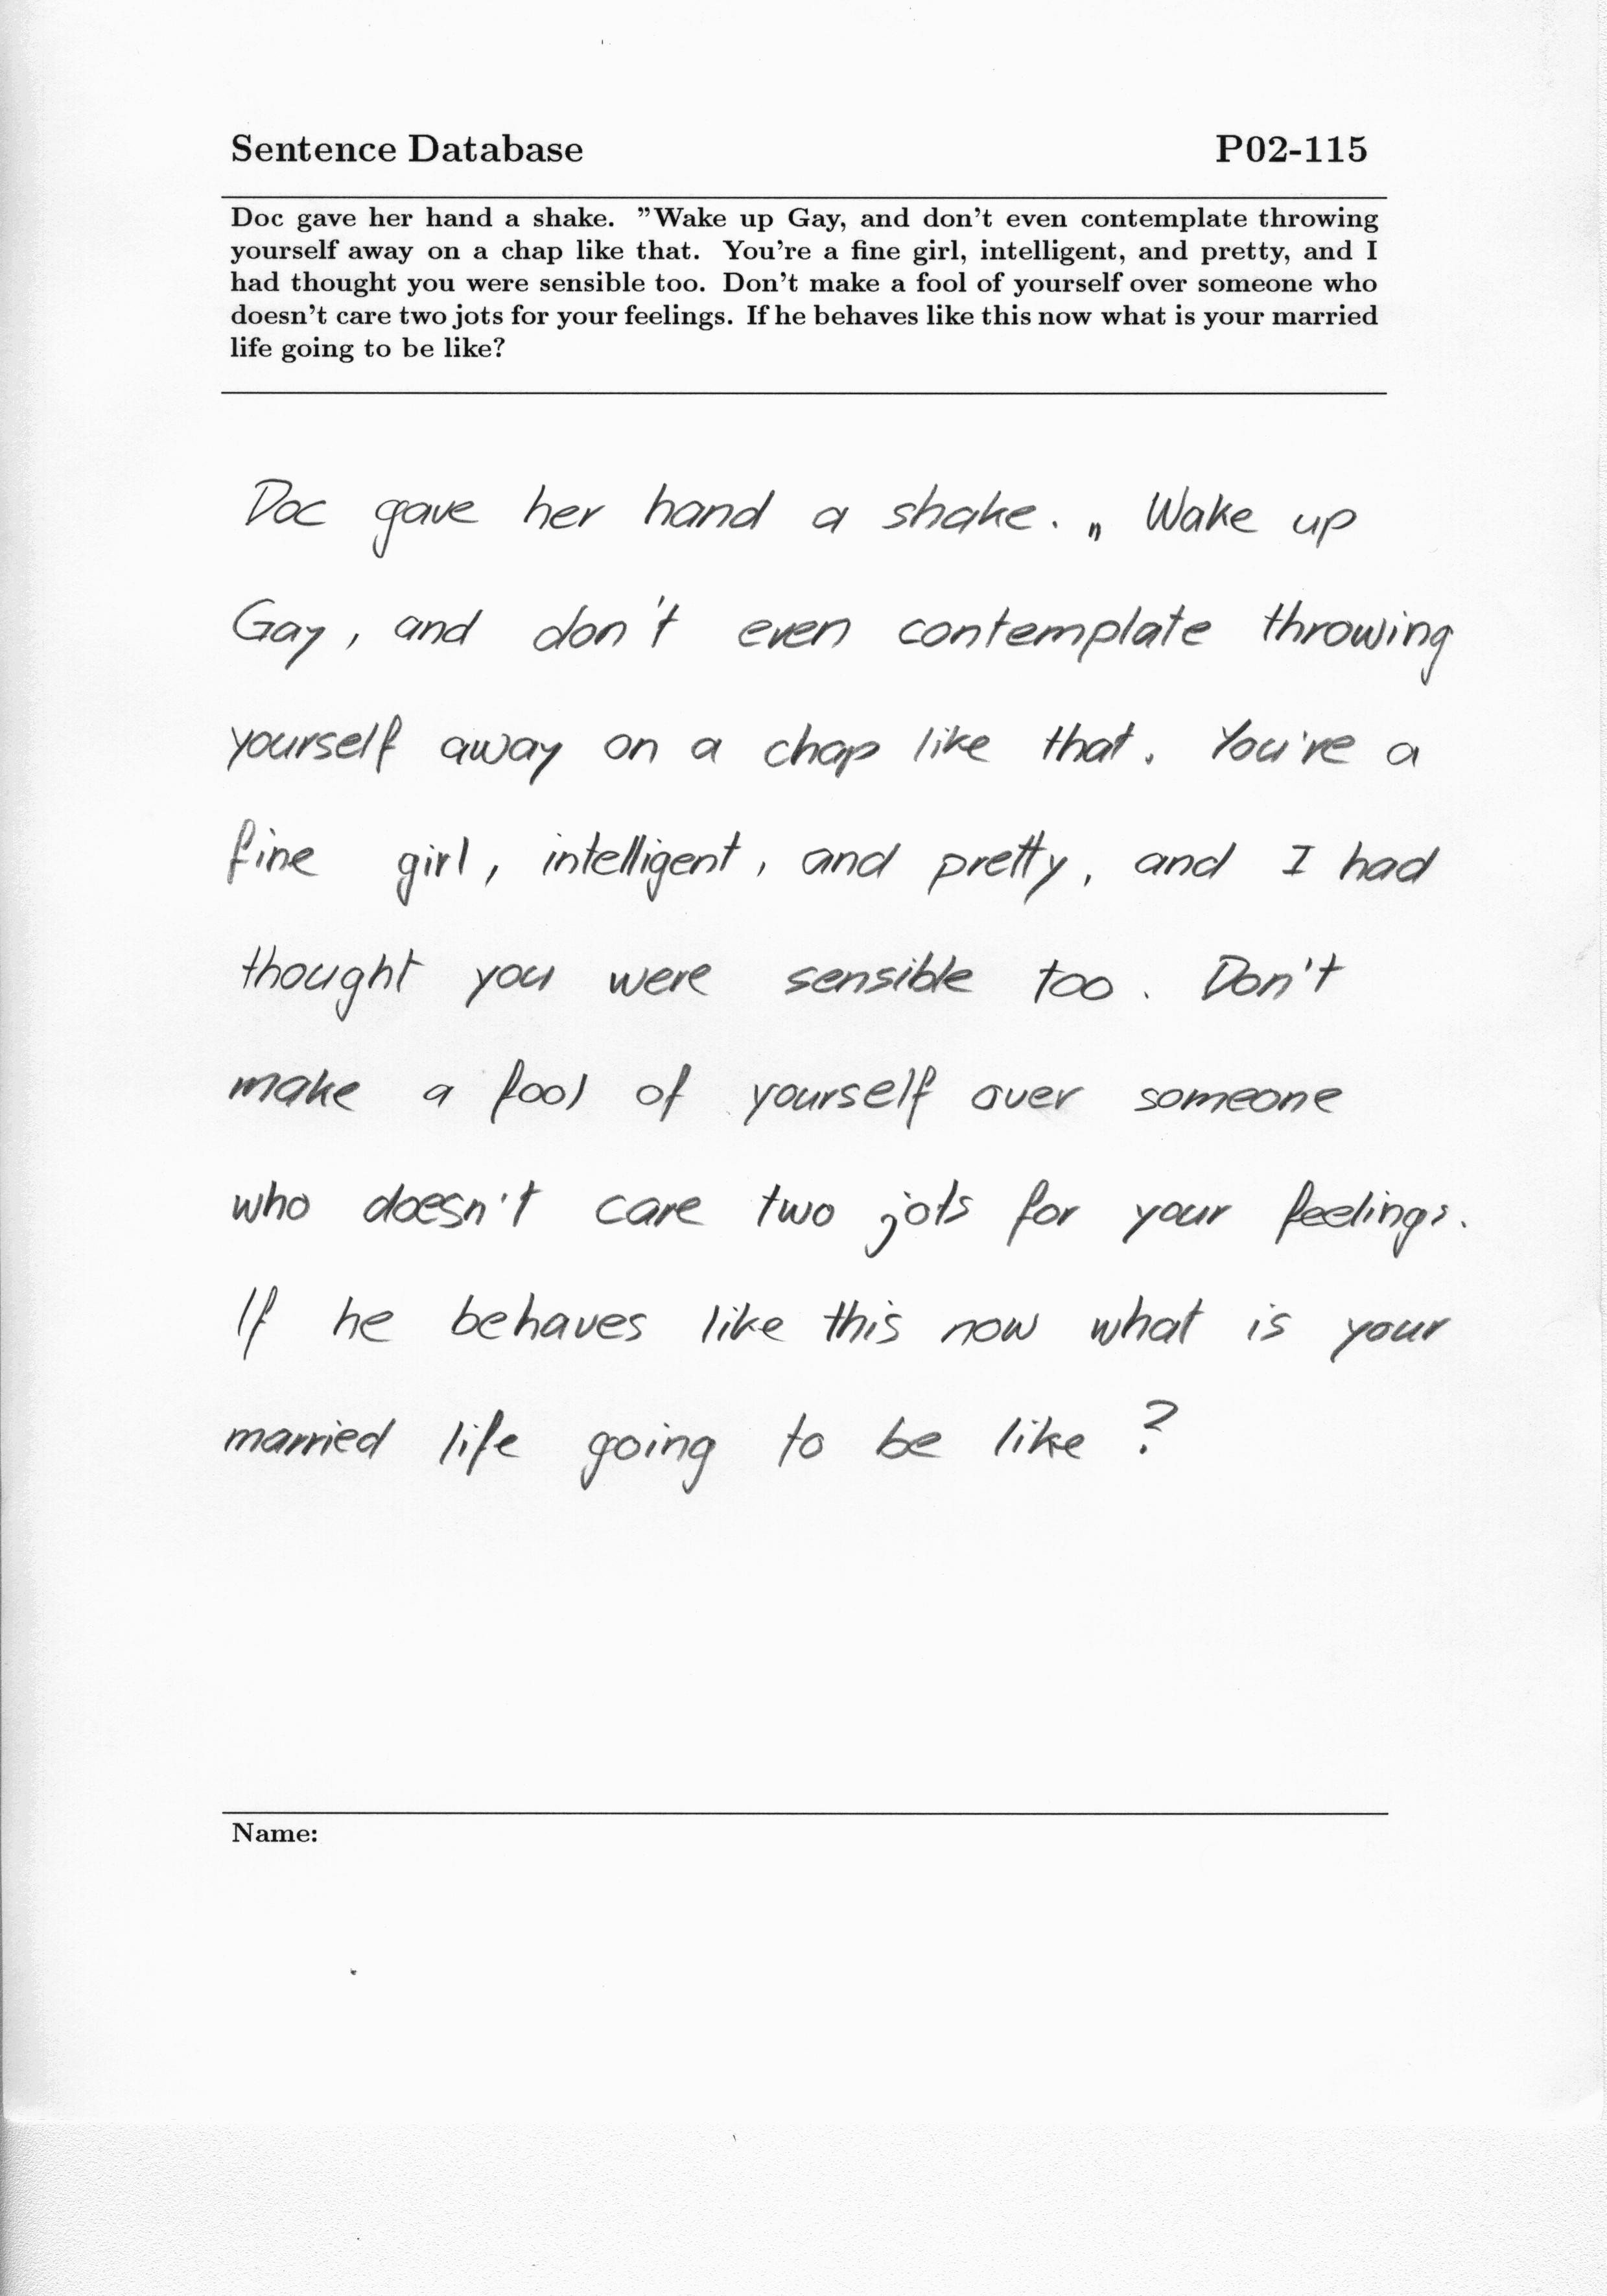 Sentence Database P02-115
Doc gave her hand a shake. ”Wake up Gay, and don't even contemplate throwing
yourself away on a chap like that. You're a fine girl, intelligent, and pretty, and I
had thought you were sensible too. Don't make a fool of yourself over someone who
doesn't care two jots for your feelings. If he behaves like this now what is your married
life going to be like?
Doc gave her hand a shake. „ Wake up
Gay, and don't even contemplate throwing
yourself away on a chap like that. You're a
fine girl, intelligent, and pretty, and I had
thought you were sensible too. Don't
make a fool of yourself over someone
who doesn't care two jots for your feelings.
If he behaves like this now what is your
married life going to be like ?
Name: